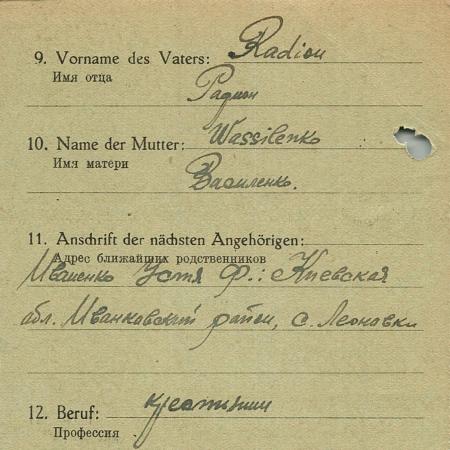 9. Vorname des Vaters: Radion
Имя отца
Радион
10. Name der Mutter: Wassilenko
Имя матери
Василенко.
11. Anschrift der nächsten Angehörigen:
Адрес ближайших родственников
Иваненко Устя Ф.: Киевская
обл. Иванковский район, с. Леоновки
12. Beruf: крестянин
Профессия